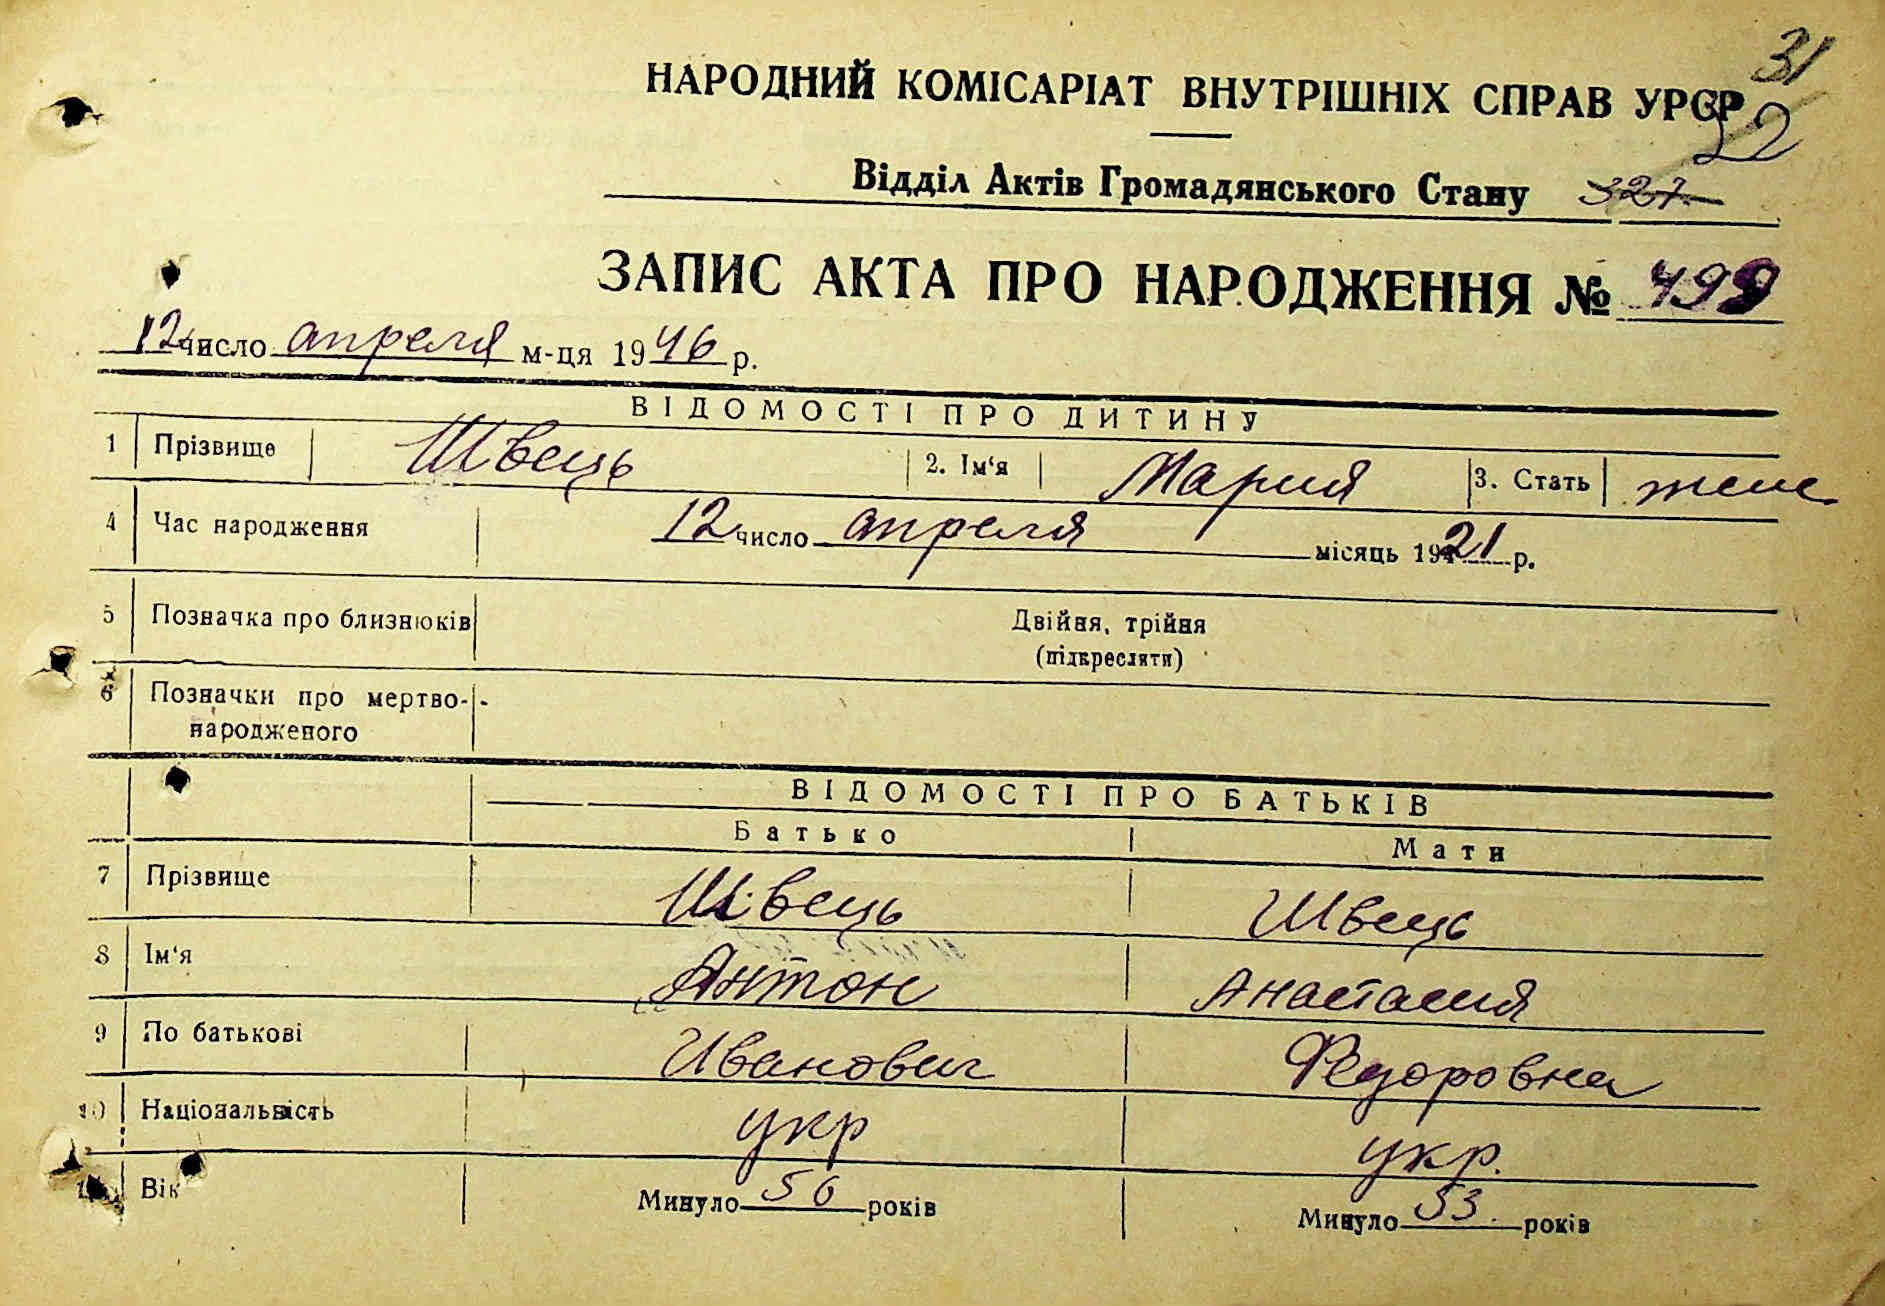 31
НАРОДНИЙ КОМІСАРІАТ ВНУТРІШНІХ СПРАВ УРСР
32
Відділ Актів Громадянського Стану 327
ЗАПИС АКТА ПРО НАРОДЖЕННЯ № 499
12 число апреля м-ця 1946 р.
ВІДОМОСТІ ПРО ДИТИНУ
1 Прізвище Швець 2. Ім'я Мария 3. Стать женс
4 Час народження 12 число апреля місяць 1921 р.
5 Позначка про близнюків Двійня, трійня
(підкреслити)
6 Позначки про мертво-
народженого
ВІДОМОСТІ ПРО БАТЬКІВ
Батько Мати
7 Прізвище Швець Швець
8 Ім'я Антон Анастасия
9 По батькові Иванович Федоровна
10 Національність укр укр.
Вік Минуло 56 років Минуло 53 років